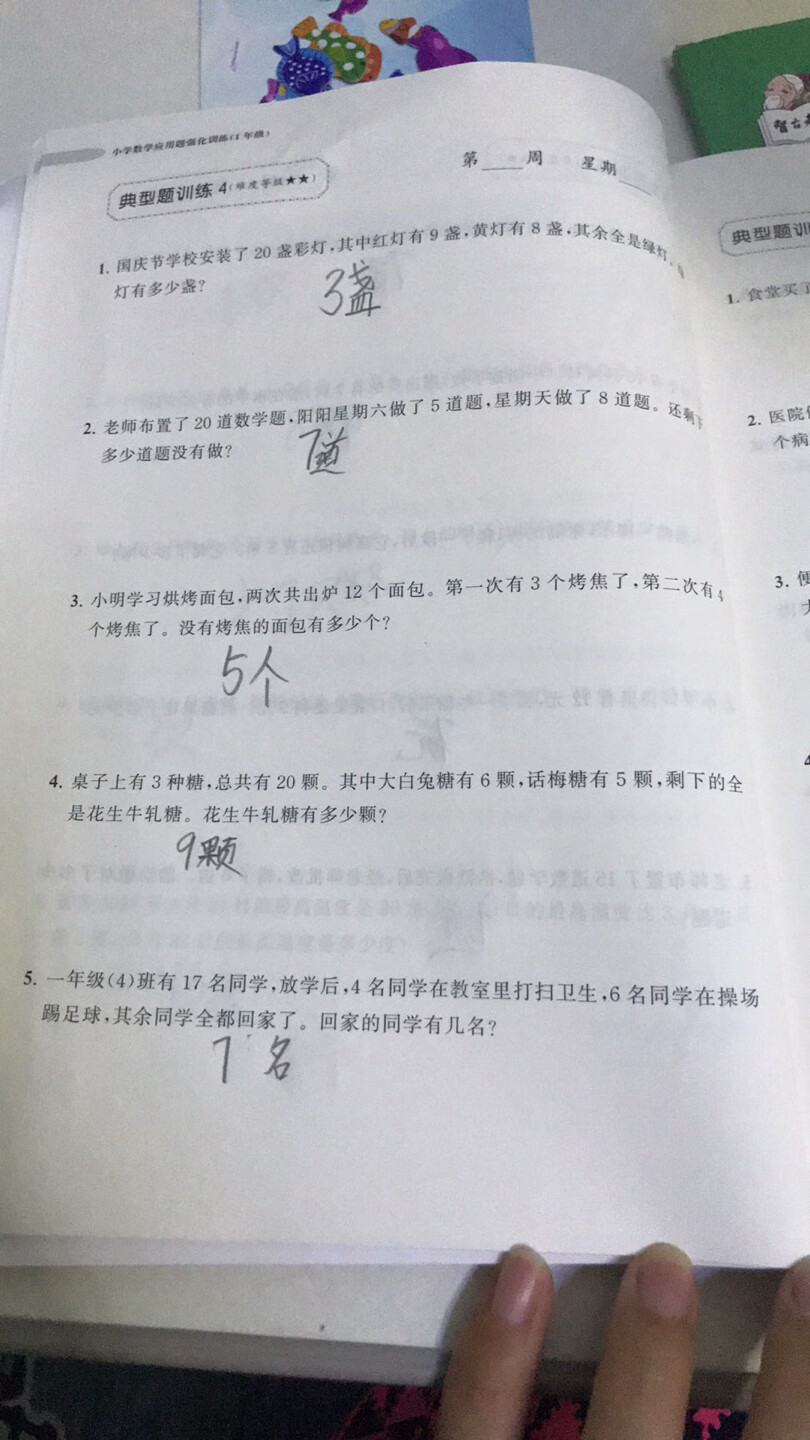 小学数学应用题强化训练(1年级)
典型题训练4(难度等级★★)
第 周 星期
1. 国庆节学校安装了20盏彩灯,其中红灯有9盏,黄灯有8盏,其余全是绿灯。
灯有多少盏?
3盏
2. 老师布置了20道数学题,阳阳星期六做了5道题,星期天做了8道题。还剩下
多少道题没有做?
7道
3. 小明学习烘烤面包,两次共出炉12个面包。第一次有3个烤焦了,第二次有4
个烤焦了。没有烤焦的面包有多少个?
5个
4. 桌子上有3种糖,总共有20颗。其中大白兔糖有6颗,话梅糖有5颗,剩下的全
是花生牛轧糖。花生牛轧糖有多少颗?
9颗
5. 一年级(4)班有17名同学,放学后,4名同学在教室里打扫卫生,6名同学在操场
踢足球,其余同学全都回家了。回家的同学有几名?
7名
典型题训
1. 食堂买了
2. 医院
个病
3. 便
1